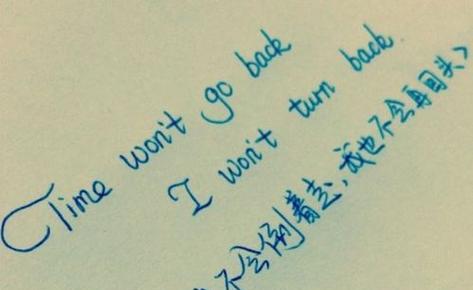 Time won't go back
I won't turn back.
不会倒着走,我也不会再回头